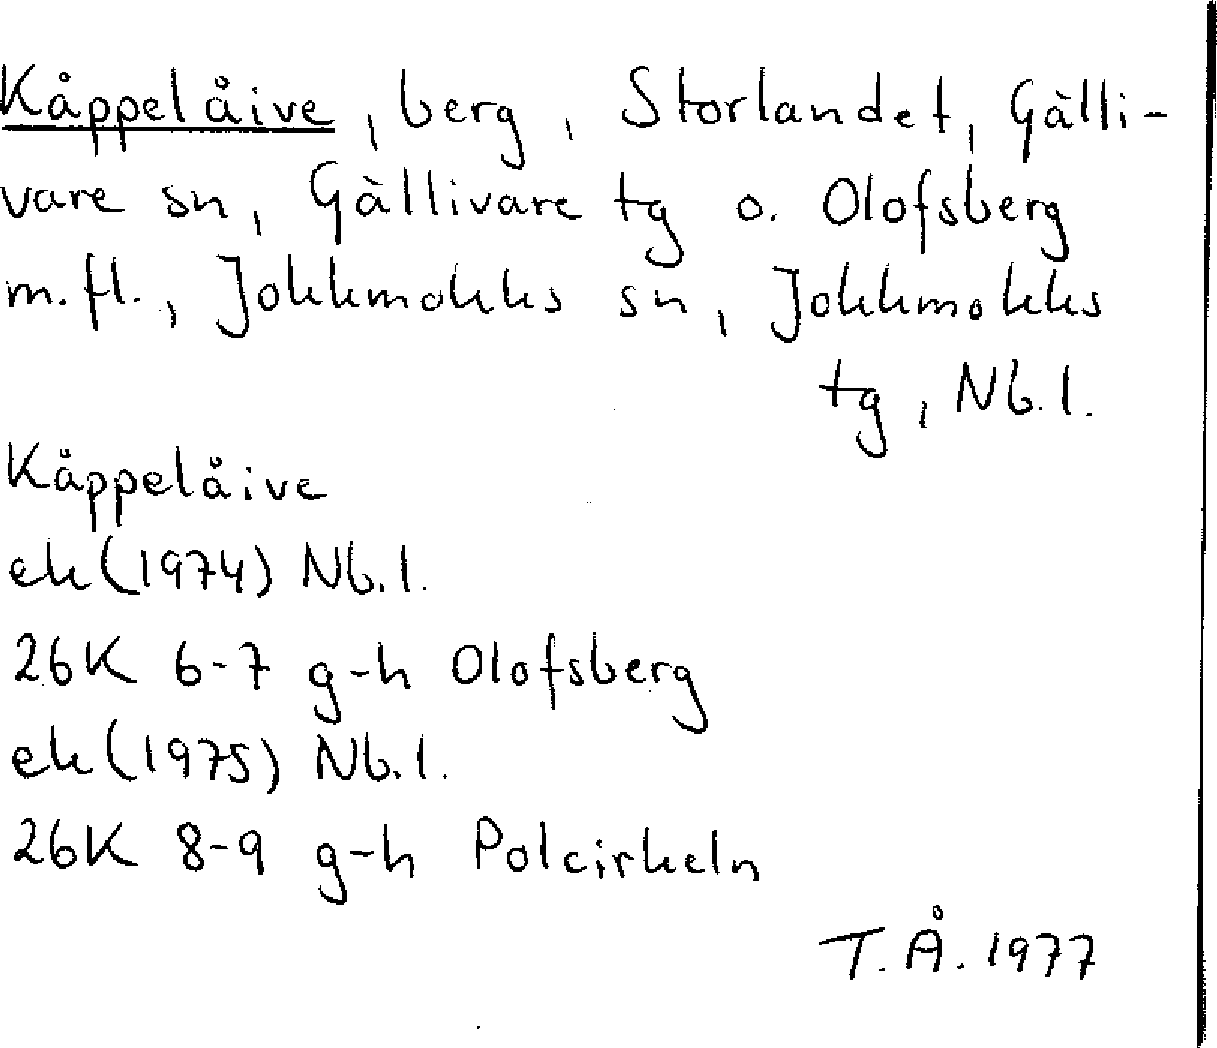 Kåppelåive, berg, Storlandet, Gälli-
vare sn, Gällivare tg o. Olofsberg
m.fl., Jokkmokks sn, Jokkmokks
tg, Nb.l.
Kåppelåive
ek(1974) Nb.l.
26K 6-7 g-h Olofsberg
ek(1975) Nb.l.
26K 8-9 g-h Polcirkeln
T.Å. 1977